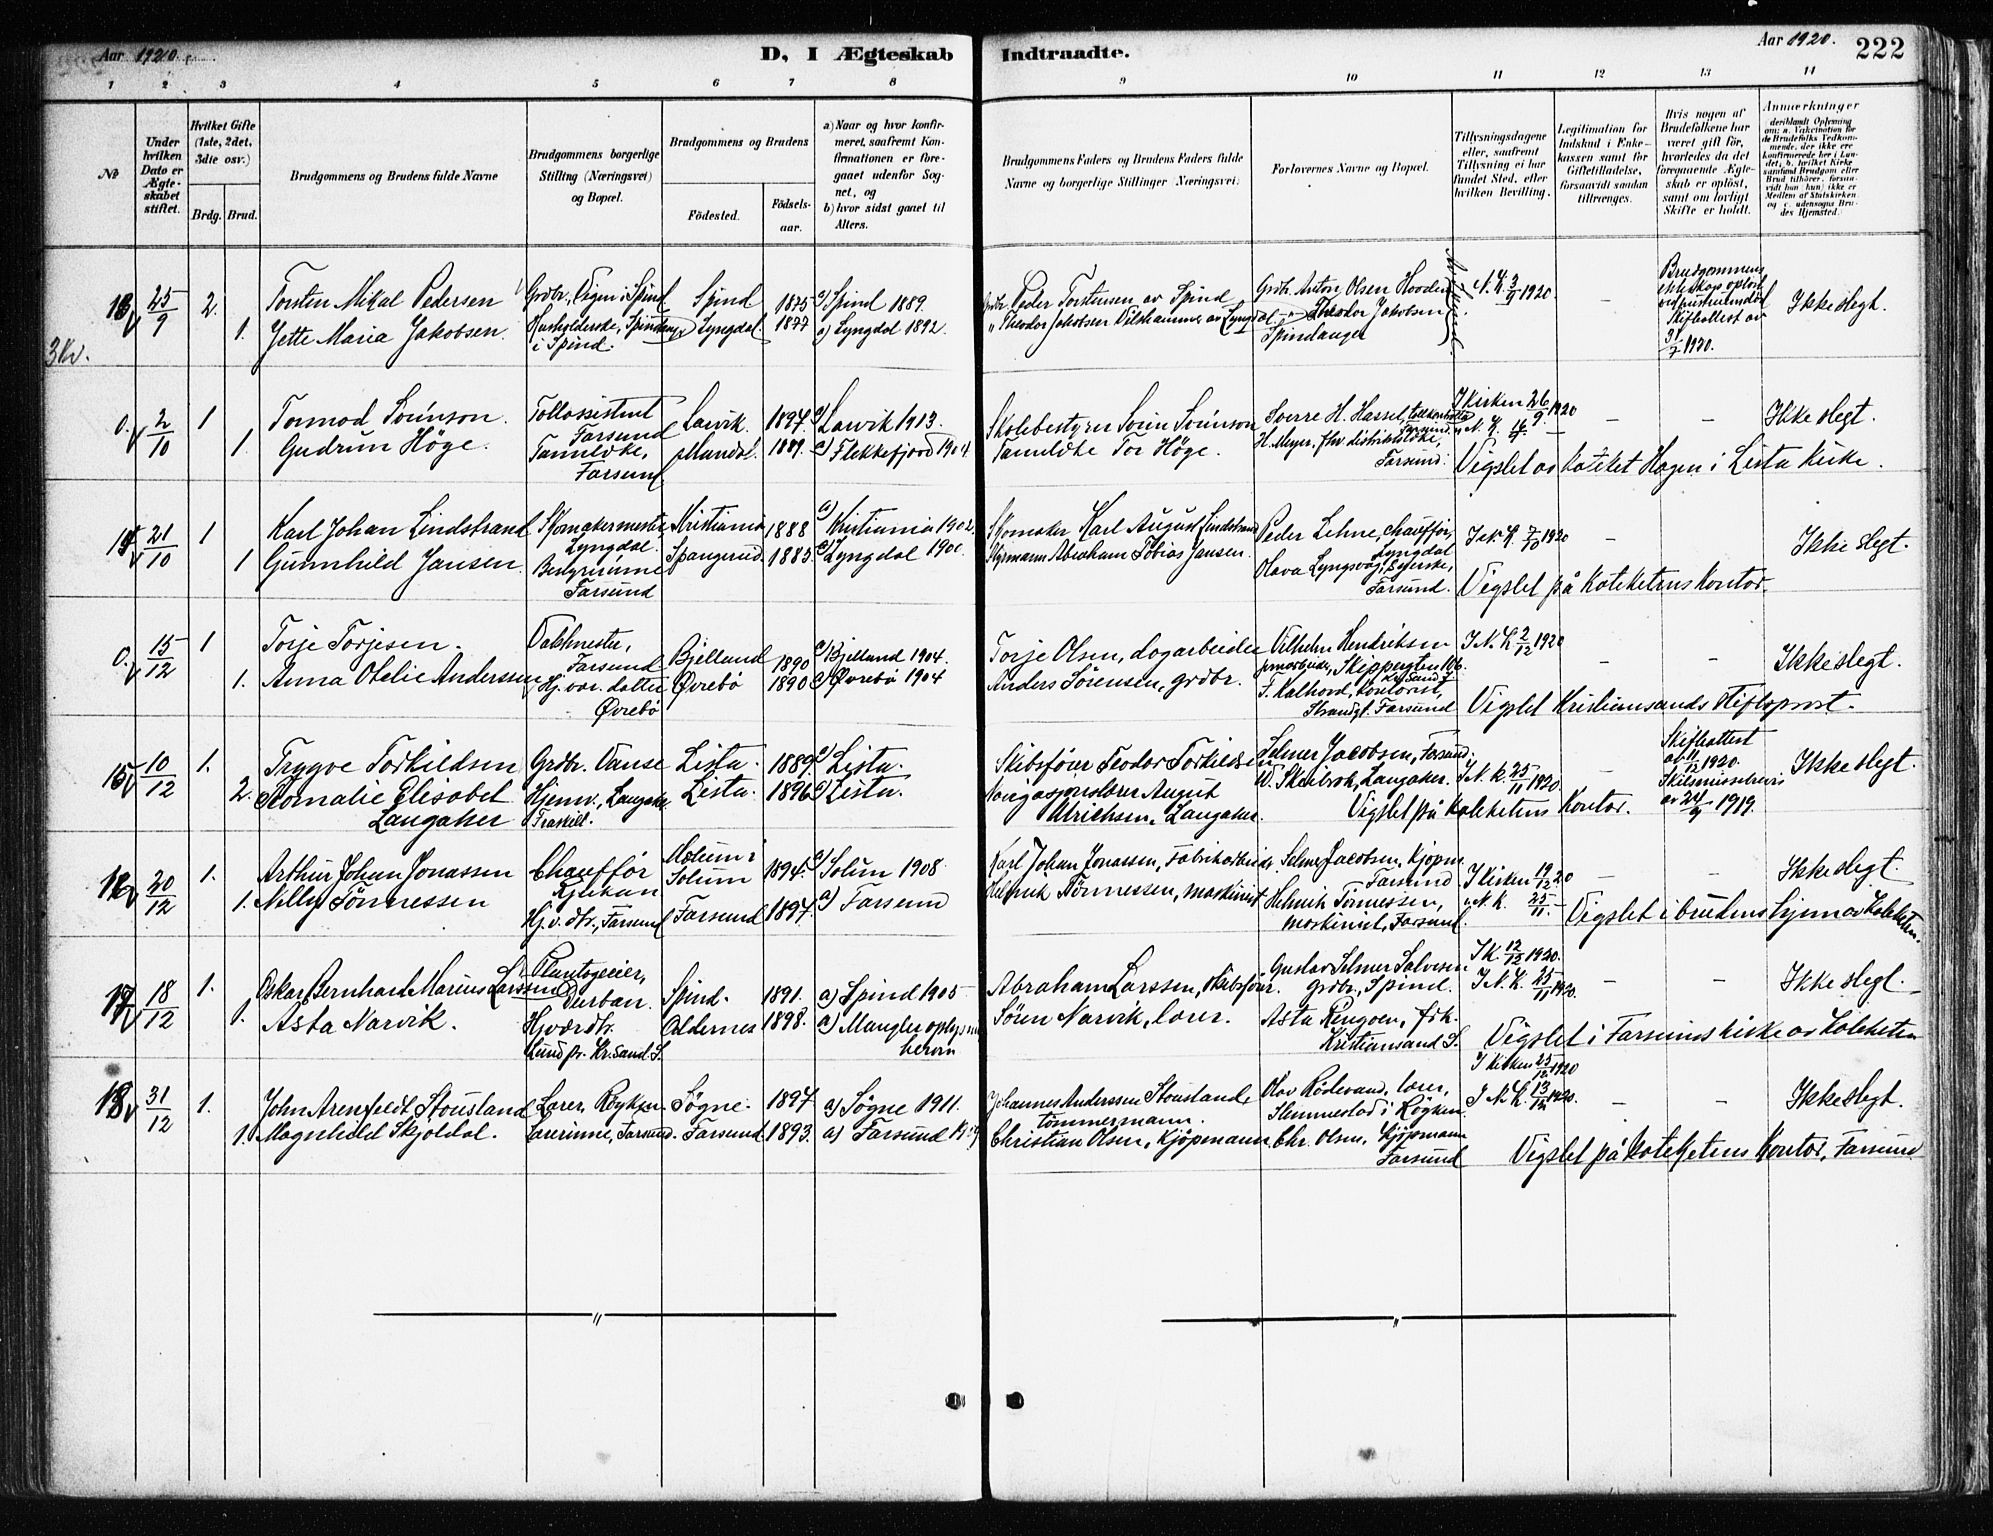 Aar 1920.
D, I Ægteskab Indtraadte.
Aar 1920.
222
1 2 3 4 5 6 7 8 9 10 11 12 13 14
№
Under hvilken Dato er Ægteskabet stiftet.
Hvilket Gifte (1ste, 2det, 3die osv.)
Brdg. Brud.
Brudgommens og Brudens fulde Navne
Brudgommens borgerlige Stilling (Næringsvei) og Bopæl.
Brudgommens og Brudens
Fødested.
Fødselsaar.
a) Naar og hvor konfirmeret, saafremt Konfirmationen er foregaaet udenfor Sognet, og
b) hvor sidst gaaet til Alters.
Brudgommens Faders og Brudens Faders fulde Navne og borgerlige Stillinger (Næringsvei).
Forlovernes Navne og Bopæl.
Tillysningsdagene eller, saafremt Tillysning ei har fundet Sted, efter hvilken Bevilling.
Legitimation for Indskud i Enkekassen samt for Giftetilladelse, forsaavidt saadan tiltrænges.
Hvis nogen af Brudefolkene har været gift før, hvorledes da det foregaaende Ægteskab er opløst, samt om lovligt Skifte er holdt.
Anmærkninger
13 25/9 2. Torsten Mikal Pedersen Grdbr., Eigen i Spind Spind 1875 a) Spind 1889. Peder Torstensen av Spind Grdb. Anton Olsen 3/9 1920 – Brudgommens ekteskap opløst ved hustruens død Skifteattest av 31/7 1920. Ikke slegt.
3 Kv.
1. Jette Maria Jakobsen Husholderske, i Spind. Lyngdal 1877 a) Lyngdal 1892. Theodor Jakobsen av Lyngdal. Theodor Jakobsen Spindanger
0. 2/10 1 Tormod Toassistent Farsund Larvik. 1897. a) Larvik 1913. Skolebestyrer Sverre H. Hassel, Farsund I Kirken 26/9 1920 – – Ikke slegt.
1. Gudrun Höge. Tannlæke, Farsund Mandal. a) Flekkefjord 1904 Tannlæke Tor Höge. H. Meyer, fhv distriktslæke, Farsund. N. K. Vigslet av Kateket Hagen i Lista kirke.
14 21/10 1 Karl Johan Lindstrand Skomakermester, Lyngdal. Kristiania 1888 a) Kristiania 1902. Skomaker Karl August Lindstrand Peder Lehne, chauffør, Lyngdal I N. K. 7/10 1920 – Ikke slegt.
1 Gunnhild Jansen. Farsund Spangereid. 1885. a) Lyngdal 1900. Styrmann Abraham Tobias Jansen. Olava Lyngsvåg, Farsund. Vigslet på Kateketens kontor.
0. 15/12 1 Torje Torjesen. Vaktmester, Farsund. Bjelland 1890 a) Bjelland 1904. Torje Olsen, dagarbeider Vilhelm Hendriksen jernarbeider, Skippergten 106. Kr.sand S. I N. K. 2/12 1920 – – Ikke slegt.
1. Anna Otelie Anderssen Hj.vær. datter Øvrebø Øvrebø 1890 a) Øvrebø 1904 Anders Sørensen, grdbr. F. Kalhovd, kontorist, Strandgt. Farsund Vigslet Kristiansands Stiftsprost.
15 10/12 1. Trygve Torkildsen Grdbr. Vanse Lista. 1889. a) Lista. Skibsfører Teodor Torkildsen Selmer Jacobsen, Farsund. – Skifteattest av 11/12 1920. Skilsmissebrev av 24/9 1919. Ikke slegt.
2. Romalie Elisabet Langaker Hjemv., Langaker Lista. 1896 a) Lista. August Ulrichsen, Langaker. W. Skeibrok, Langaker. I N. K. 25/11 1920. Vigslet på Kateketens Kontor.
16 20/12 1. Arthur Johan Jonassen Chauffør Rjukan Mælum i Solum 1894. a) Solum 1908. Karl Johan Jonassen, Fabrikarbeider Selmer Jacobsen, Kjøpm. Farsund I Kirken 19/12 20 – – Ikke slegt.
1. Nelly Tönnessen Hj.v. dtr., Farsund Farsund 1897. a) Farsund Helmik Tönnessen, maskinist Helmik Tönnessen, maskinist, Farsund. N. K. 25/11. Vigslet i brudens hjem av Kateketen.
17 18/12 1. Oskar Bernhard Marius Larssen Plantageeier, Durban. Spind. 1891. a) Spind 1905 Abraham Larssen, Skibsfører. Gustav Selmer Salvesen grdbr., Spind. I K. 12/12 1920. I N. K. 25/11 1920. – – Ikke slegt.
1. Asta Narvik. Hj.vær.dtr. Lund pr. Kr.sand S. Oddernes 1898. a) Mangler oplysn. herom Søren Narvik, lærer. Asta frk. Kristiansand S. Vigslet i Farsunds kirke av Kateketen
18 31/12 1. John Arenfeldt Stousland Lærer, Røyken Søgne. 1897 a) Søgne 1911. Johannes Andersen Stousland tømmermann. Olav Rödevand, lærer, Slemmestad i Røyken. I Kirken 25/12 1920 I N. K. 13/12 1920. – – Ikke slegt.
1. Magnhild Skjoldal. Lærerinne, Farsund. Farsund. 1893. a) Farsund Christian Olsen, Kjöpmann Chr. Olsen, Kjöpmann Farsund Vigslet på Kateketens Kontor, Farsund